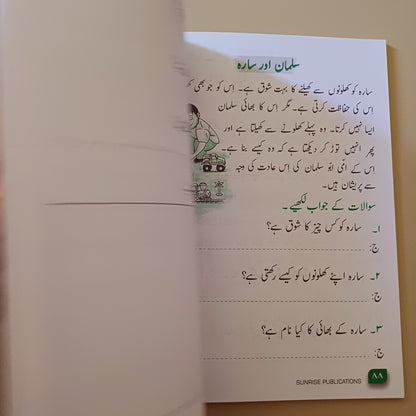 سلمان اور سارہ
سارہ کو کھلونوں سے کھیلنے کا بہت شوق ہے۔ اِس کو جو بھی
اِس کی حفاظت کرتی ہے۔ مگر اِس کا بھائی سلمان
ایسا نہیں کرتا۔ وہ پہلے کھلونے سے کھیلتا ہے اور
پھر انہیں توڑ کر دیکھتا ہے کہ وہ کیسے بنا ہے۔
اِس کے امّی ابّو سلمان کی اِس عادت کی وجہ
سے پریشان ہیں۔
سوالات کے جواب لکھیے۔
۱۔ سارہ کو کس چیز کا شوق ہے؟
ج:
۲۔ سارہ اپنے کھلونوں کو کیسے رکھتی ہے؟
ج:
۳۔ سارہ کے بھائی کا کیا نام ہے؟
ج:
SUNRISE PUBLICATIONS ۸۸